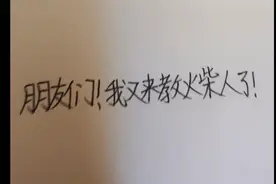 朋友们!我又来教火柴人了!